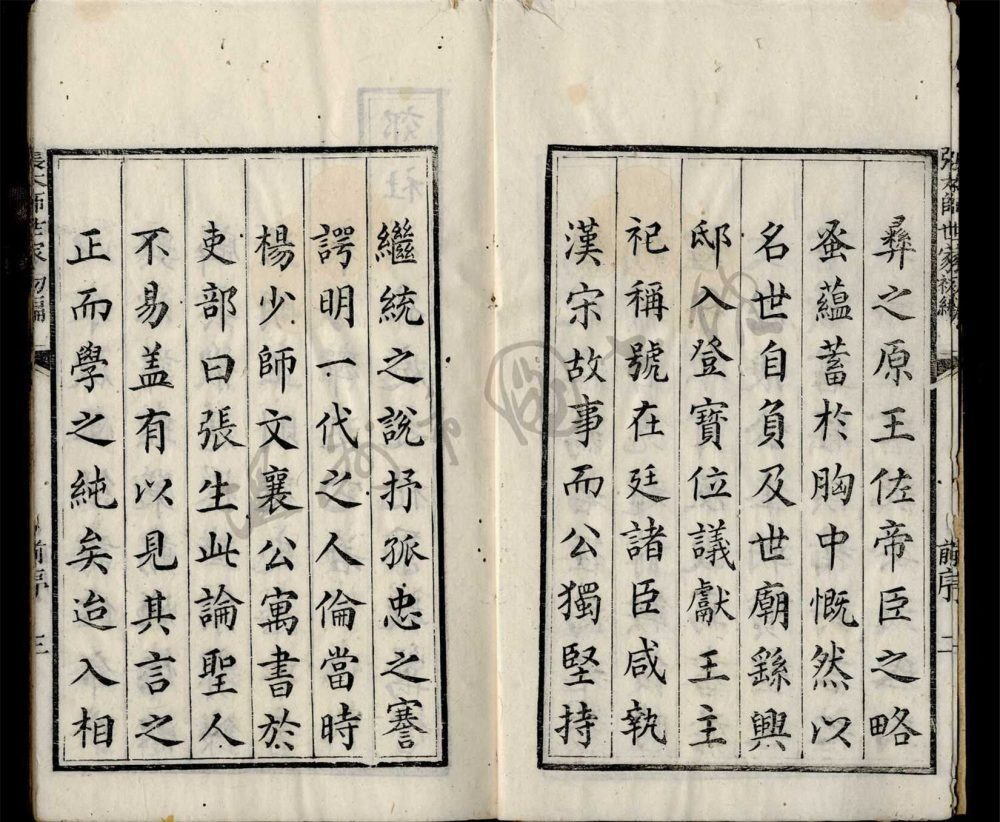 彛之原王佐帝臣之略
蚤蘊蓄於胸中慨然以
名世自負及世廟繇興
邸入登寶位議獻王主
祀稱號在廷諸臣咸執
漢宋故事而公獨堅持
前序 二
繼統之說抒孤忠之謇
諤明一代之人倫當時
楊少師文襄公寓書於
吏部曰張生此論聖人
不易盖有以見其言之
正而學之純矣迨入相
前序 三